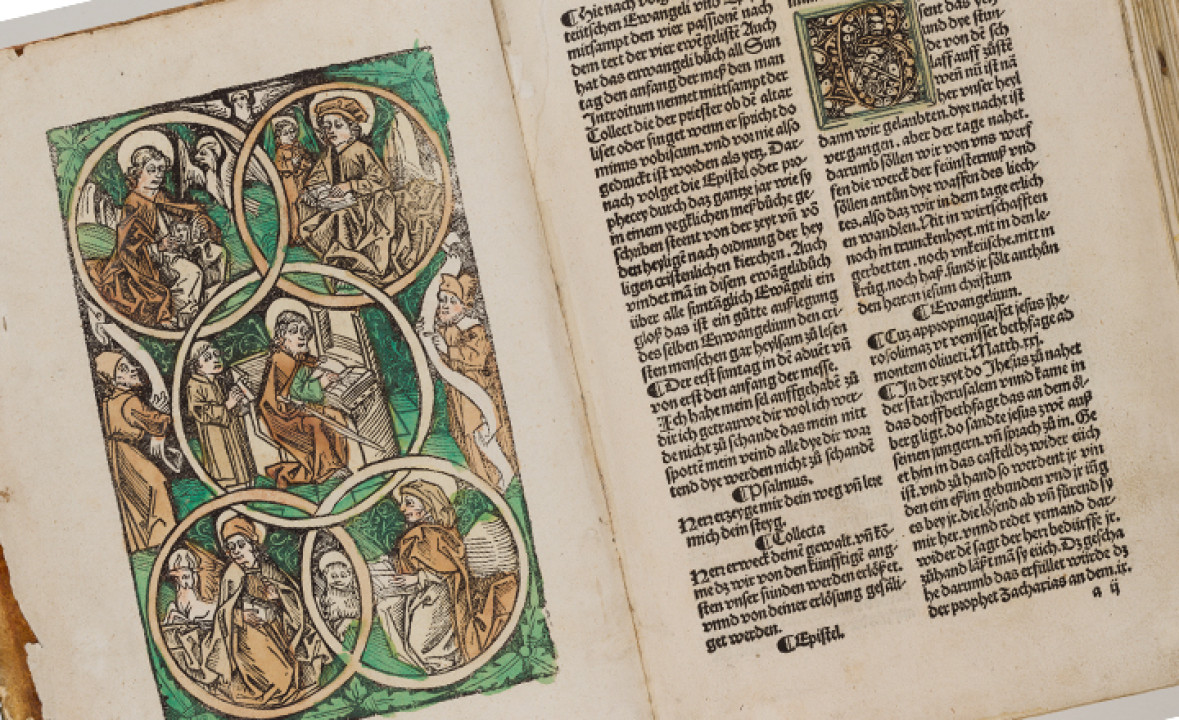 ¶Hie nach
teütschen Ewangeli vnd
mitsampt den vier passionē nach
dem text der vier ewēgelistē Auch
hat das ewangeli bůch all Sun
tag den anfang der meß den man
Introitum nennet mittsampt der
Collect die der priester ob dē altar
liset oder singet wenn er spricht do
minus vobiscum.vnd vor nie also
gedruckt ist worden als yetz. Dar-
nach volget die Epistel oder pro-
phecey durch daz gantze jar wie sy
in einem yegklichen meßbůche ge-
schriben steent von der zeyt vñ vō
den heyligē nach ordnung der hey
ligen cristenlichen kierchen. Auch
vindet mā in disem ewāgelibůch
über alle suntäglich Ewāgeli ein
gloß das ist ein gůtte außlegung
des selben Ewangelium den cri-
sten menschen gar heylsam zů lesen
¶Der erst suntag in dē aduēt vñ
von erst den anfang der messe.
Ich habe mein sel auffgehabē zů
dir ich getrauwe dir wol ich wer-
de nicht zů schande das mein nitt
spottē mein veind alle dye dir war
tend dye werden nicht zů schandē
¶Psalmus.
Herr erzeyge mir dein weg vñ lere
mich dein steyg.
¶Collecta
Herr erweck deinē gewalt.vñ kō-
me dz wir von den künfftigē ang-
sten vnser sünden werden erlößet.
vnnd von deiner erlösung gesäli-
get werden.
¶Epistel.
sent das
vnd dye stun-
de von dē sch
laff auff zůstē
weñ nü ist nā
her vnser heyl
dann wir gelaubten.dye nacht ist
vergangen. aber der tage nahet.
darumb söllen wir von vns werf
fen die werck der feinsternuß vnd
söllen antůn dye waffen des liech-
tes.also daz wir in dem tage erlich
en wandlen. Nit in wirtschafften
noch in trunckenheyt.nit in den le-
gerbetten.noch vnkeüsche.nitt in
krüg.noch haß.sund jr sölt anthůn
den herren jesum christum
¶Ewangelium.
¶Cuz appropinquasset jesus jhe-
rosolimaz vt venisset bethfage ad
montem oliueti. Matth. xxi.
¶In der zeyt do Jhesus zů nahet
der stat jherusalem vnnd kame in
das dorff bethfage das an dem öl-
berg ligt.do sandte jesus zwē auß
seinen jungern.vñ sprach zů in. Ge
et hin in das castell dz wider eüch
ist.vnd zů hand so werdent jr vin
den ein eßlin gebunden vnd jr iūg
es bey jr.die lösend ab vñ fürend sy
mir her.vnnd redet yemand dar-
wider dē sagt der herr bedürffe jr.
zůhand läßt mā sy eüch. Dz gescha
he darumb das erfüllet wurde dz
der prophet Zacharias an dem.ix.
a ij